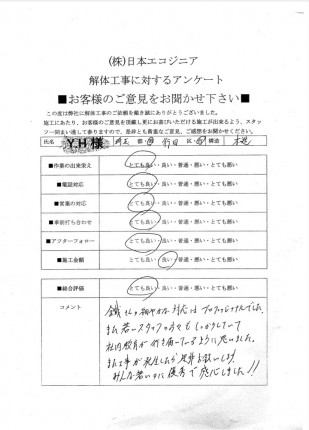 (株)日本エコジニア
解体工事に対するアンケート
■お客様のご意見をお聞かせ下さい■
この度は弊社に解体工事のご依頼を戴き誠にありがとうございました。
施工にあたり、お客様のご意見を頂戴し更にお喜びいただける施工が出来るよう、スタッフ
一同まい進して参りますので、是非とも貴重なご意見、ご感想をお聞かせください。
氏名 Y.H様 埼玉 都・県 行田 区・市 構造 木造
■作業の出来栄え とても良い・良い・普通・悪い・とても悪い
■電話対応 とても良い・良い・普通・悪い・とても悪い
■営業の対応 とても良い・良い・普通・悪い・とても悪い
■事前打ち合わせ とても良い・良い・普通・悪い・とても悪い
■アフターフォロー とても良い・良い・普通・悪い・とても悪い
■施工金額 とても良い・良い・普通・悪い・とても悪い
■総合評価 とても良い・良い・普通・悪い・とても悪い
コメント
さんの 対応は プロフェッショナルでした。
また若いスタッフの方々もしっかりしていて
社内教育が行き届いているように思いました。
また工事が発生したら是非お願いします。
みんな若いのに優秀で感心しました!!